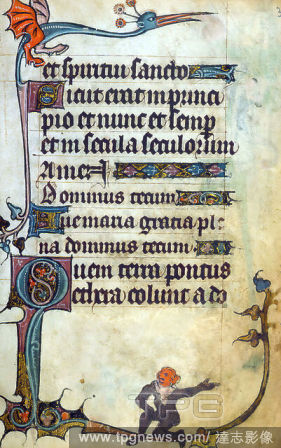 et spiritui sancto
Sicut erat in princi
pio et nunc et semp
et in secula seculorum
Amen
Dominus tecum
Aue maria gratia ple
na dominus tecum
Quem terra pontus
ethera colunt ado
TPG
www.tpgnews.com/達志影像